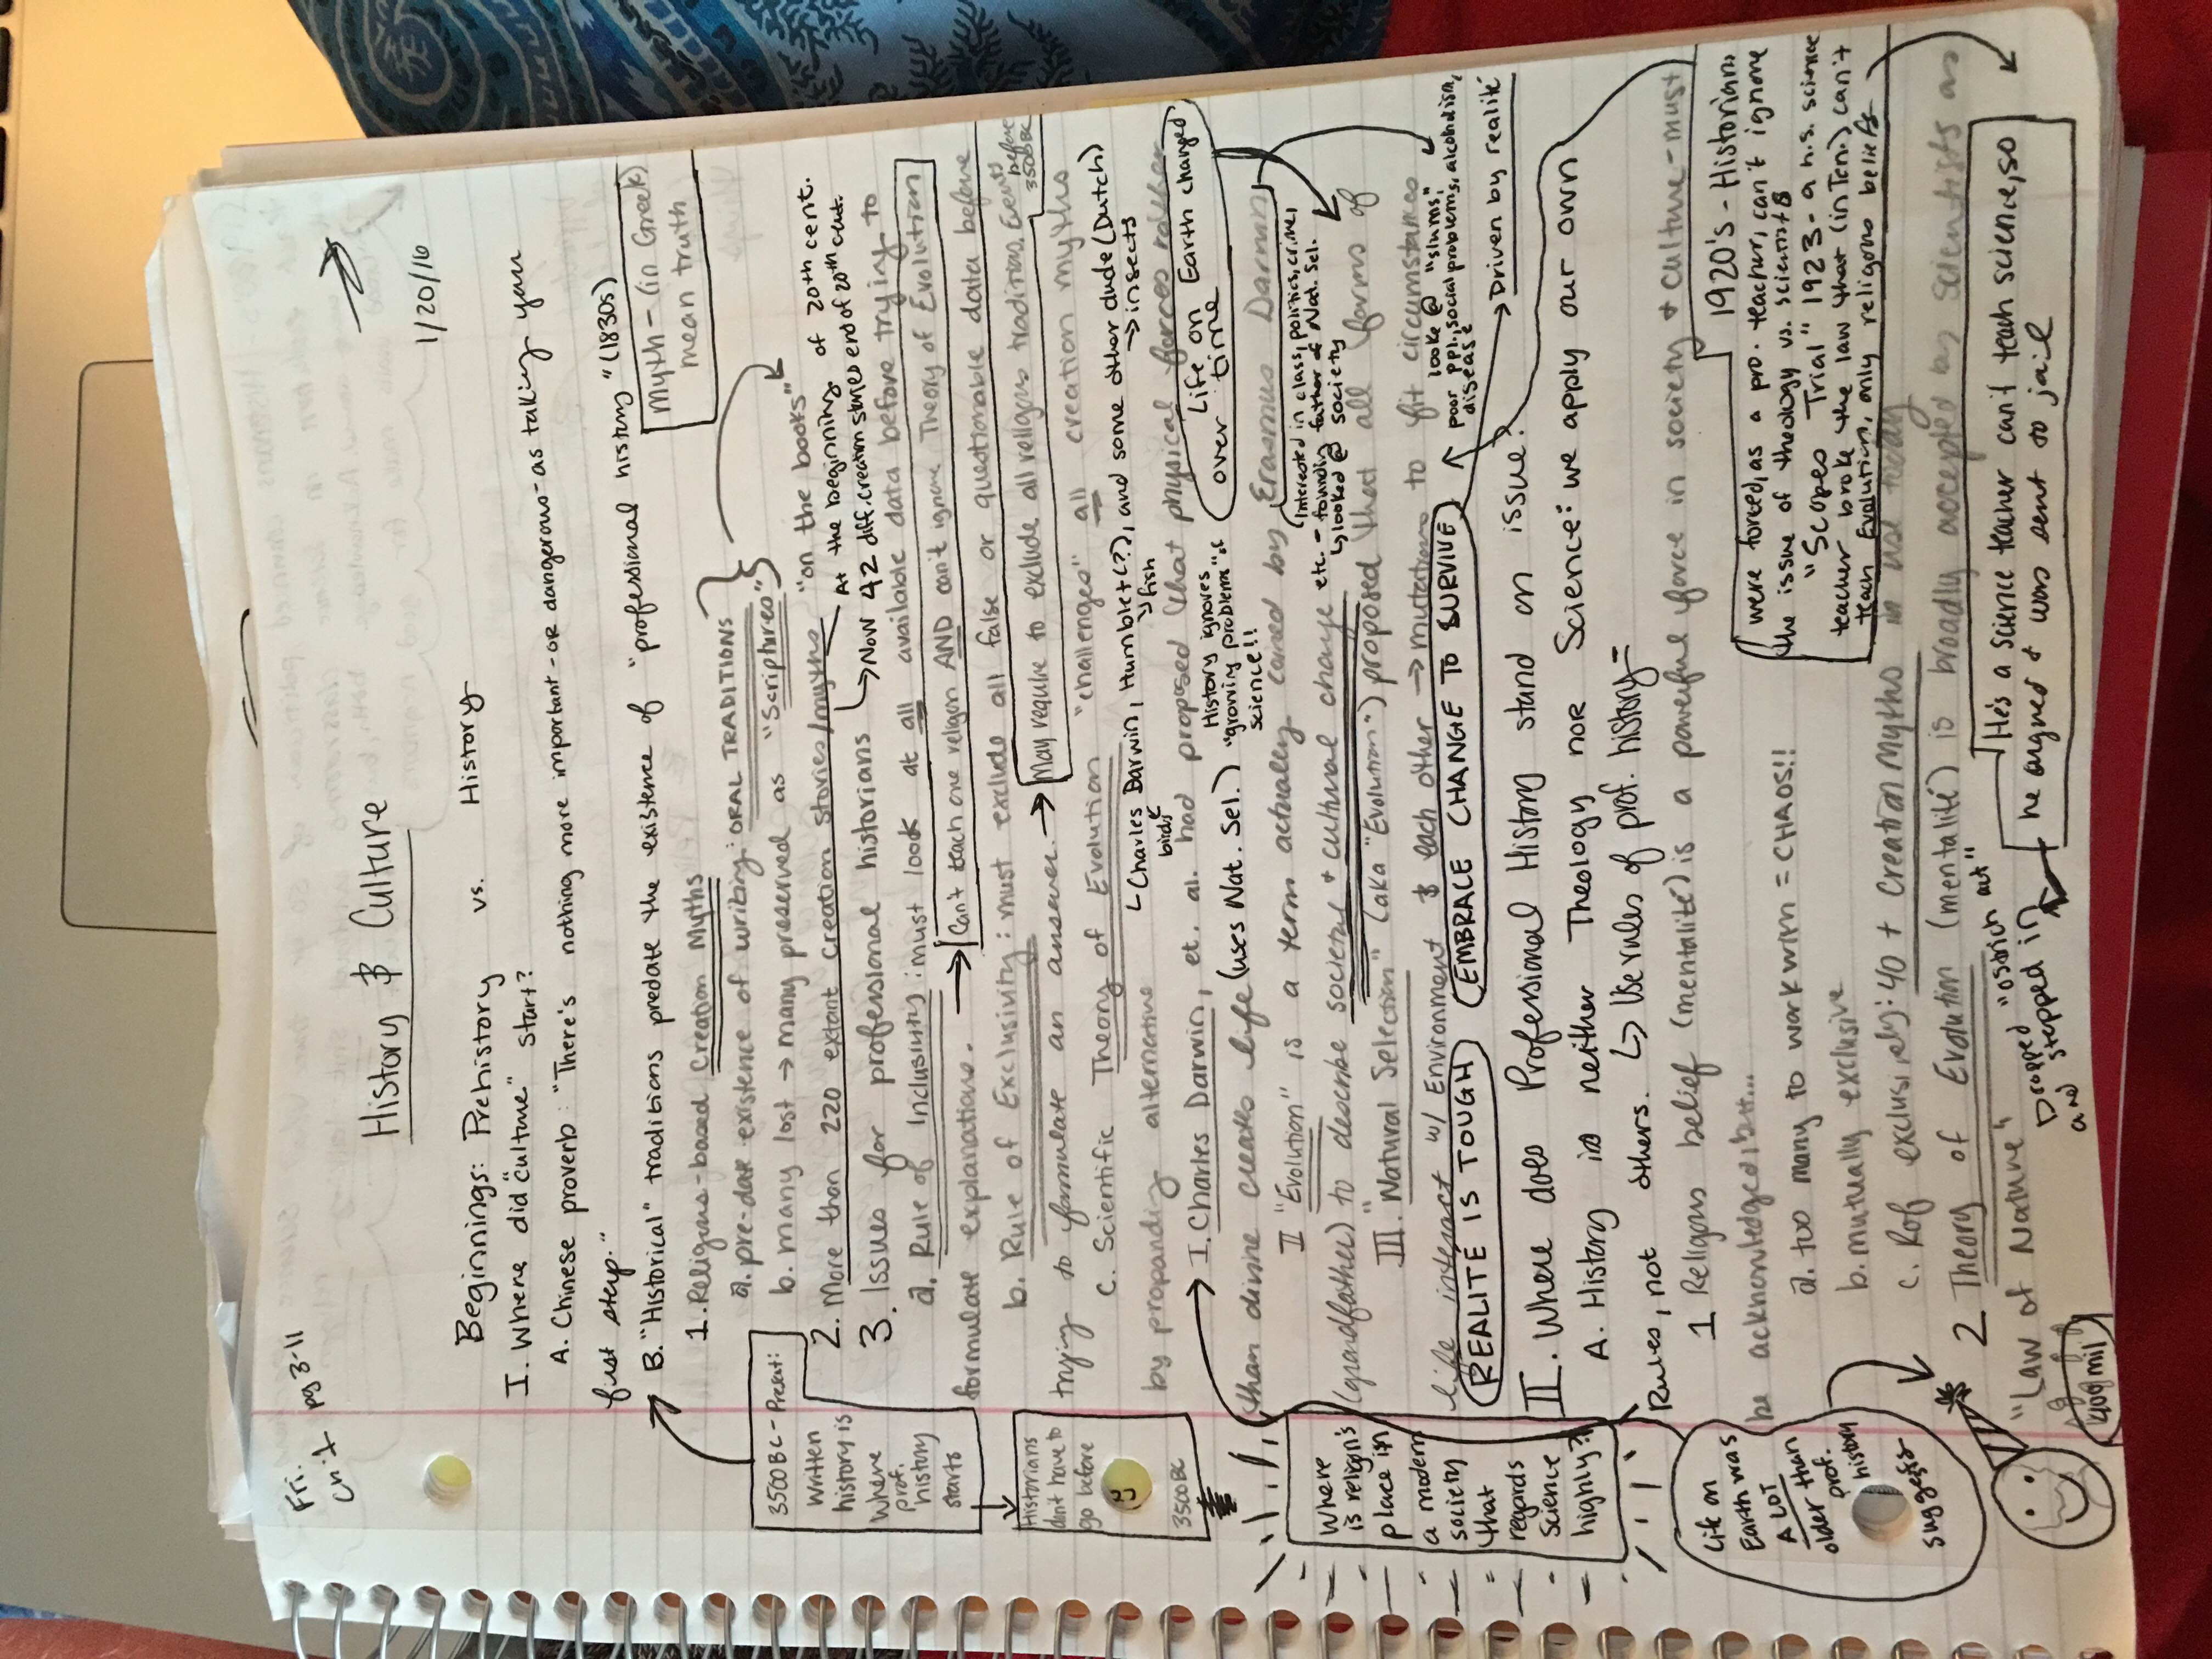 Fri.
Ch:1 pg 3-11
History & Culture
1/20/16
Beginnings: Prehistory vs. History
I. Where did "culture" start?
A. Chinese proverb: "There's nothing more important - OR dangerous - as taking your
first step."
B. "Historical" traditions predate the existence of "professional history" (1830s)
Myth - (in Greek)
mean truth
1. Religious-based Creation Myths
a. pre-date existence of writing: ORAL TRADITIONS
b. many lost → many preserved as "Scriptures"
"on the books"
2. More than 220 extant creation stories/myths
At the beginning of 20th cent.
→ Now 42 diff. creation stories end of 20th cent.
3. Issues for professional historians
a. Rule of Inclusivity: must look at all available data before trying to
formulate explanations.
→ Can't teach one religon AND can't ignore Theory of Evolution
b. Rule of Exclusivity: must exclude all false or questionable data before
trying to formulate an answer.
→ May require to exclude all religous traditions. Events before 3500BC
c. Scientific Theory of Evolution "challenges" all creation myths
by propounding alternative
↳ Charles Darwin, Humblet(?), and some other dude (Dutch)
birds
↳ fish
→ insects
I. Charles Darwin, et. al. had proposed that physical forces rather
than divine creates life (uses Nat. Sel.)
History ignores
"growing problems" of
science!!
Life on
Earth changed
over time
II "Evolution" is a term actually coined by Erasmus Darwin
(grandfather) to describe societal & cultural change
Interested in class, politics, crime,
etc. - founding father of Nat. Sel.
↳ looked @ society
III. Natural Selection" (aka "Evolution") proposed that all forms of
life interact w/ Environment & each other → mutations to fit circumstances
looke @ "slums",
poor ppl, social problems, alcoholism,
disease
REALITE IS TOUGH
EMBRACE CHANGE TO SURVIVE
→ Driven by realité
II. Where does Professional History stand on issue?
A. History is neither Theology nor Science: we apply our own
Rules, not others. ↳ Use rules of prof. history =
1 Religous belief (mentalité) is a powerful force in society & culture - must
be acknowledged but...
a. too many to work with = CHAOS!!
b. mutually exclusive
c. R of exclusively: 40 + Creation Myths in use today
1920's - Historians
were forced, as a pro. teacher, can't ignore
the issue of theology vs. scientists
"Scopes Trial" 1923 - a h.s. science
teacher broke the law that (in Ten.) can't
teach Evolution, only religous beliefs
2 Theory of Evolution (mentalité) is broadly accepted by scientists as
"Law of Nature"
Dropped "ostrich act"
and stepped in
He's a science teacher can't teach science, so
he argued & was sent to jail
3500BC - Present:
Written
history is
where
prof.
history
starts
Historians
dont have to
go before
3500BC
Where
is religin's
place in
a modern
society
that
regards
Science
highly?
Life on
Earth was
A LOT
older than
prof.
history
suggests